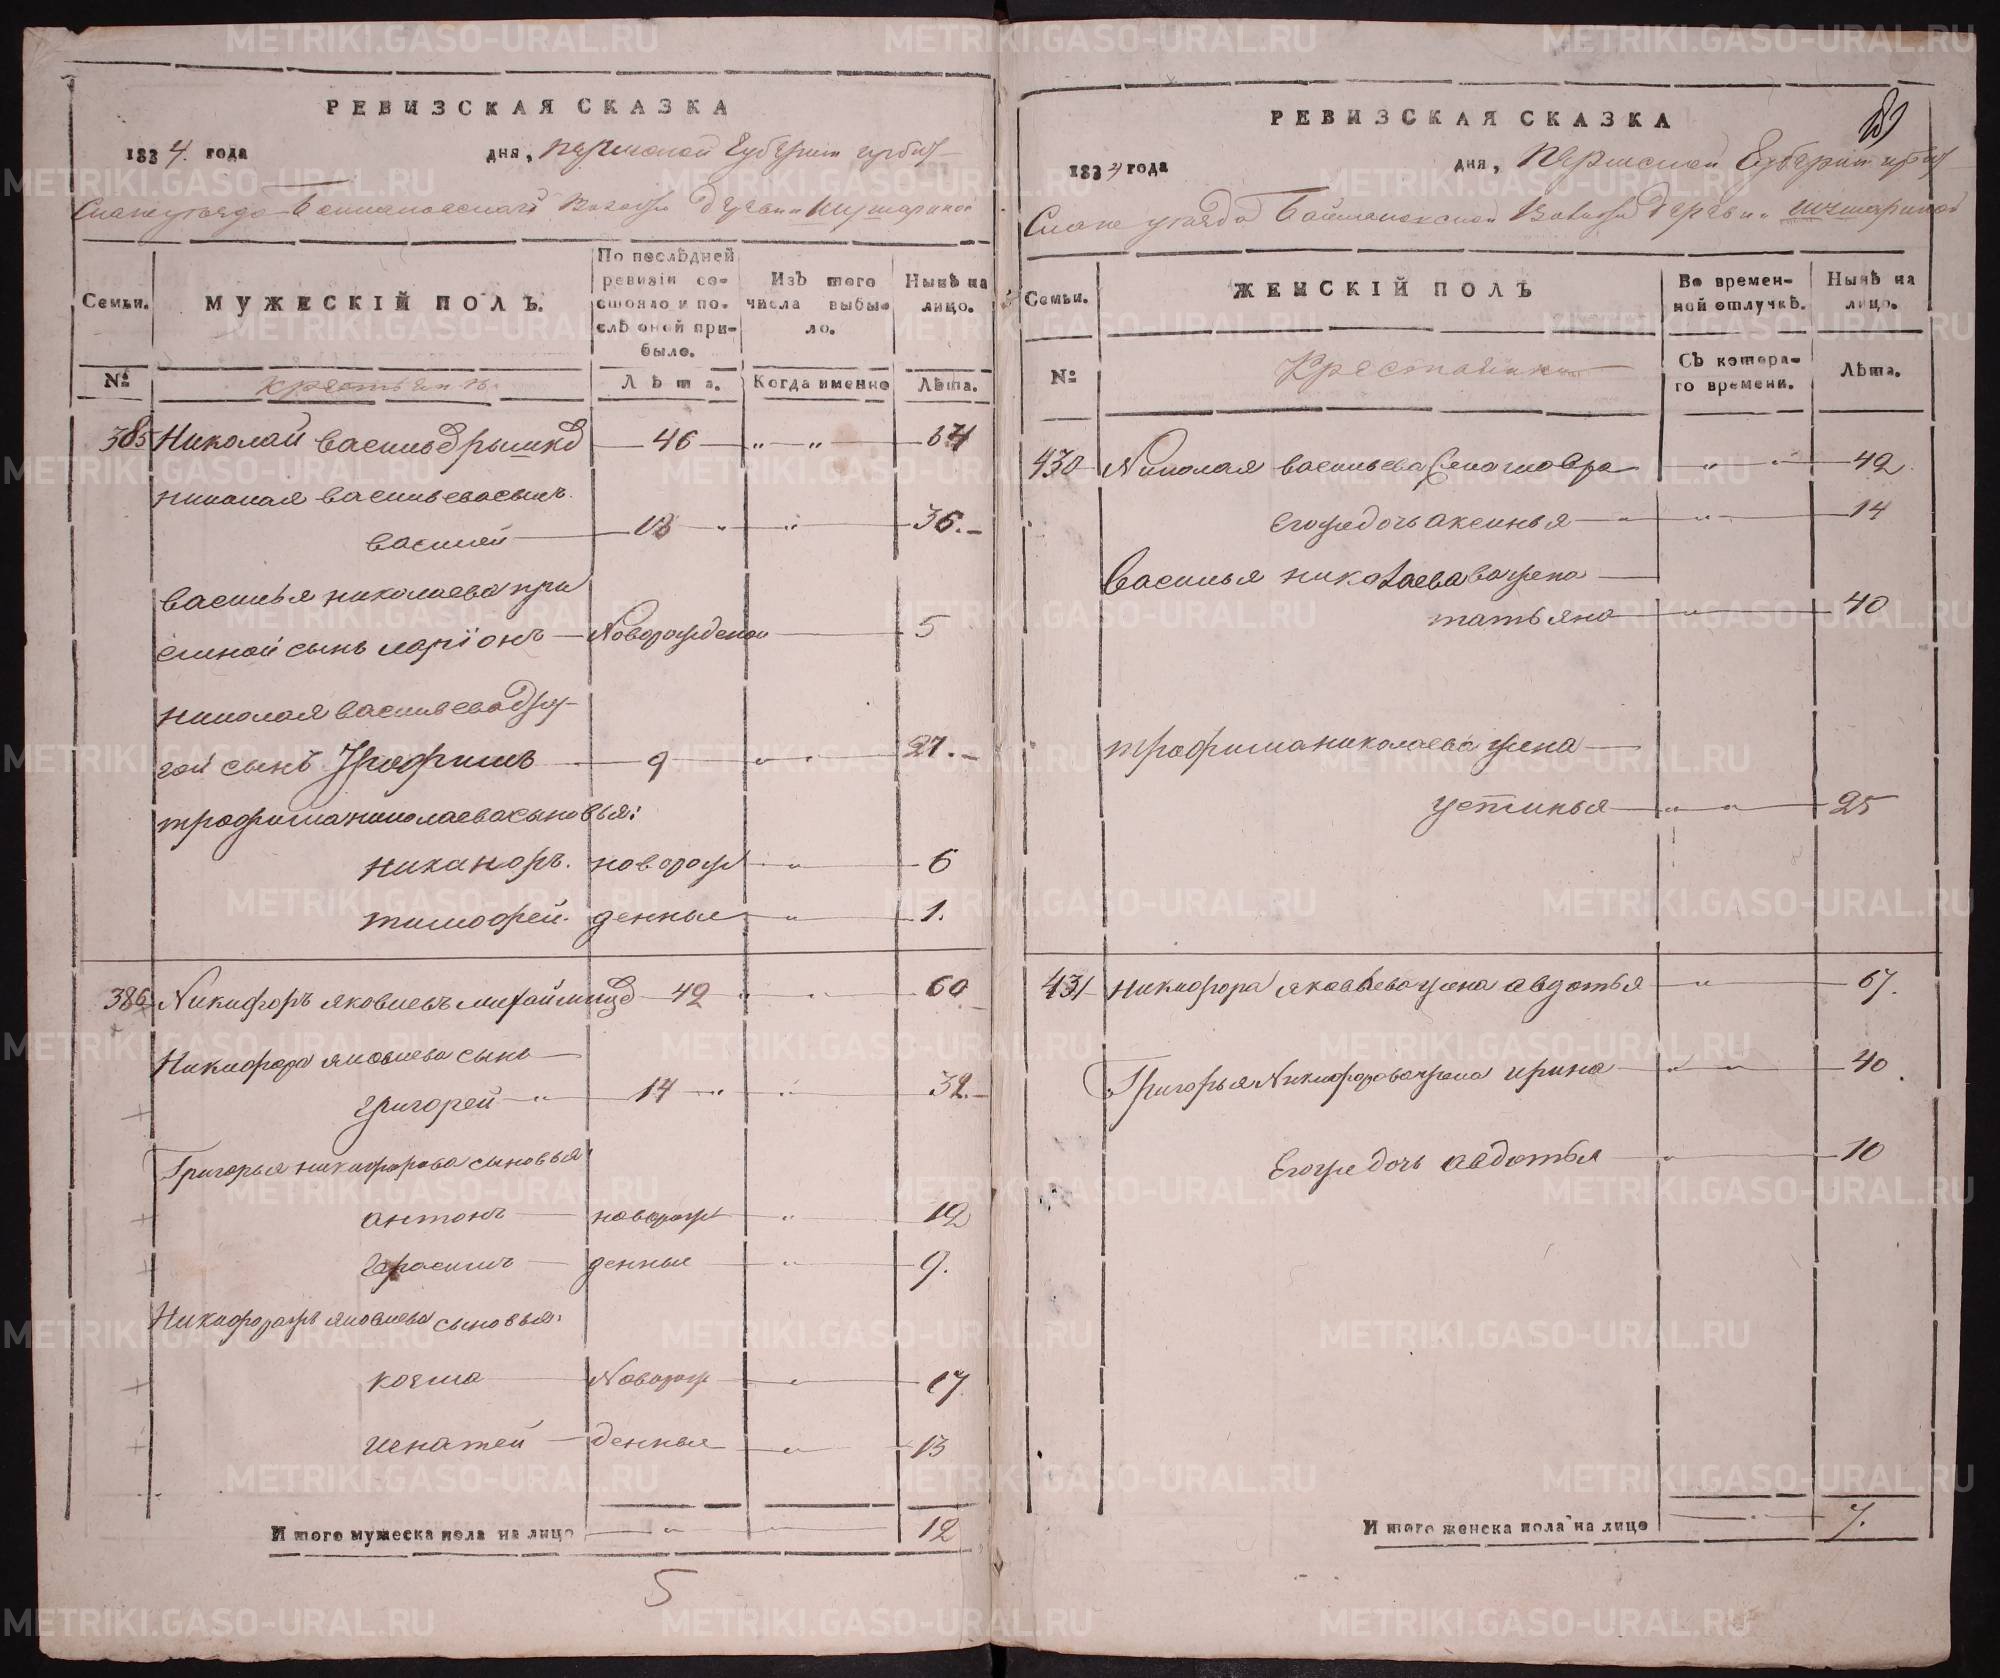 РЕВИЗСКАЯ СКАЗКА
1834. года дня, пермской Губернiи ирбит-
скаго уѣзда Волости деревни
Семьи. МУЖЕСКІЙ ПОЛЪ. По послѣдней ревизіи состояло и послѣ оной прибыло. Изъ того числа выбыло. Нынѣ на лицо.
№ крестьянъ. Лѣта. Когда именно Лѣта.
385 Николай васильев 46 „ „ 64
николая васильева сынъ
василей 18 „ „ 36.
василья николаева при
емной сынъ ларiонъ Новорожденой 5
николая васильева дру-
гой сынъ Трофимъ 9 „ „ 27.
трофима николаева сыновья:
никаноръ. новорож „ 6
тимофей. денные „ 1.
386 Никифоръ яковлевъ 42 „ „ 60
Никифора яковлева сынъ
григорей „ 14 „ „ 32.
Григорья никифорова сыновья:
антонъ новорож „ 12
Герасимъ денные „ 9.
Никифора жъ яковлева сыновья:
козма Новорож „ 17
игнатей денные „ 13
Итого мужеска пола на лицо „ „ 12
5
РЕВИЗСКАЯ СКАЗКА
1834 года дня, пермской Губернiи ирбит-
скаго уѣзда Волости деревни
Семьи. ЖЕНСКІЙ ПОЛЪ Во временной отлучкѣ. Нынѣ на лицо.
№ Крестьянки Съ котораго времени. Лѣта.
430 Николая васильева жена „ „ 42.
Егожъ дочь аксинья „ „ 14
василья николаева жена
татьяна „ 40
трофима николаева жена
устинья „ „ 25
431 никифора яковлева жена авдотья „ 67.
Григорья Никифорова жена ирина „ „ 40
Егожъ дочь авдотья „ 10
Итого женска пола на лицо „ 7.
METRIKI.GASO-URAL.RU